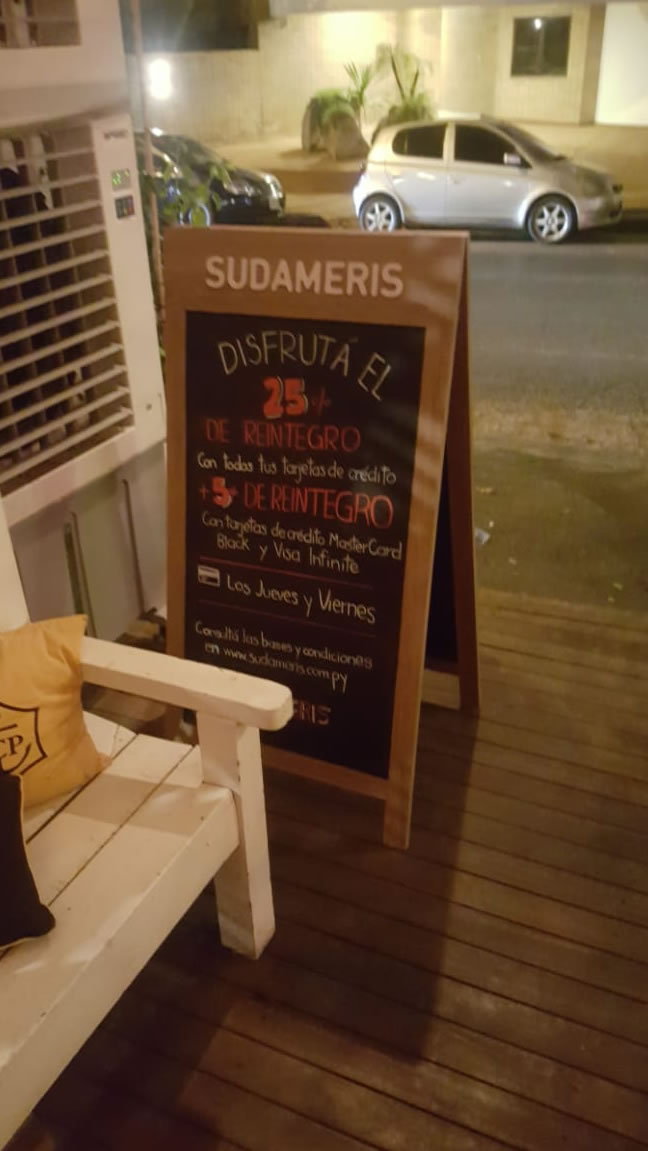 SUDAMERIS
DISFRUTÁ EL
25%
DE REINTEGRO
Con todas tus tarjetas de crédito
+5% DE REINTEGRO
Con tarjetas de crédito MasterCard
Black y Visa Infinite
Los Jueves y Viernes
Consultá las bases y condiciones
en www.sudameris.com.py
ERIS
CP